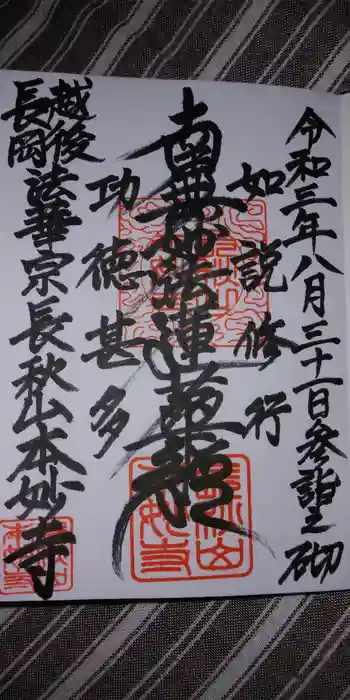 令和三年八月三十一日参詣之砌
如説修行
南無妙法蓮華経
功徳甚多
越後
長岡法華宗長秋山本妙寺